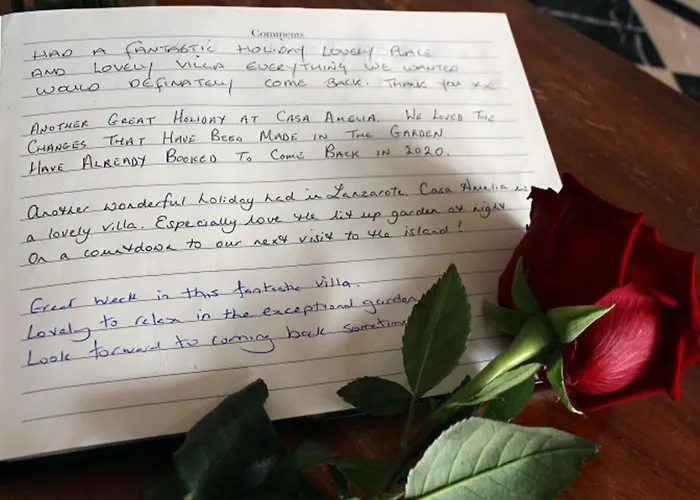 Comments
HAD A FANTASTIC HOLIDAY LOVELY PLACE
AND LOVELY VILLA EVERYTHING WE WANTED
WOULD DEFINATELY COME BACK. THANK YOU xx
ANOTHER GREAT HOLIDAY AT CASA AMELIA. WE LOVED THE
CHANGES THAT HAVE BEED MADE IN THE GARDEN.
HAVE ALREADY BOOKED TO COME BACK IN 2020.
Another wonderful holiday had in Lanzarote. Casa Amelia is
a lovely villa. Especially love the lit up garden at night
On a countdown to our next visit to the island!
Great week in this fantastic villa.
Lovely to relax in the exceptional garden
Look forward to coming back sometime